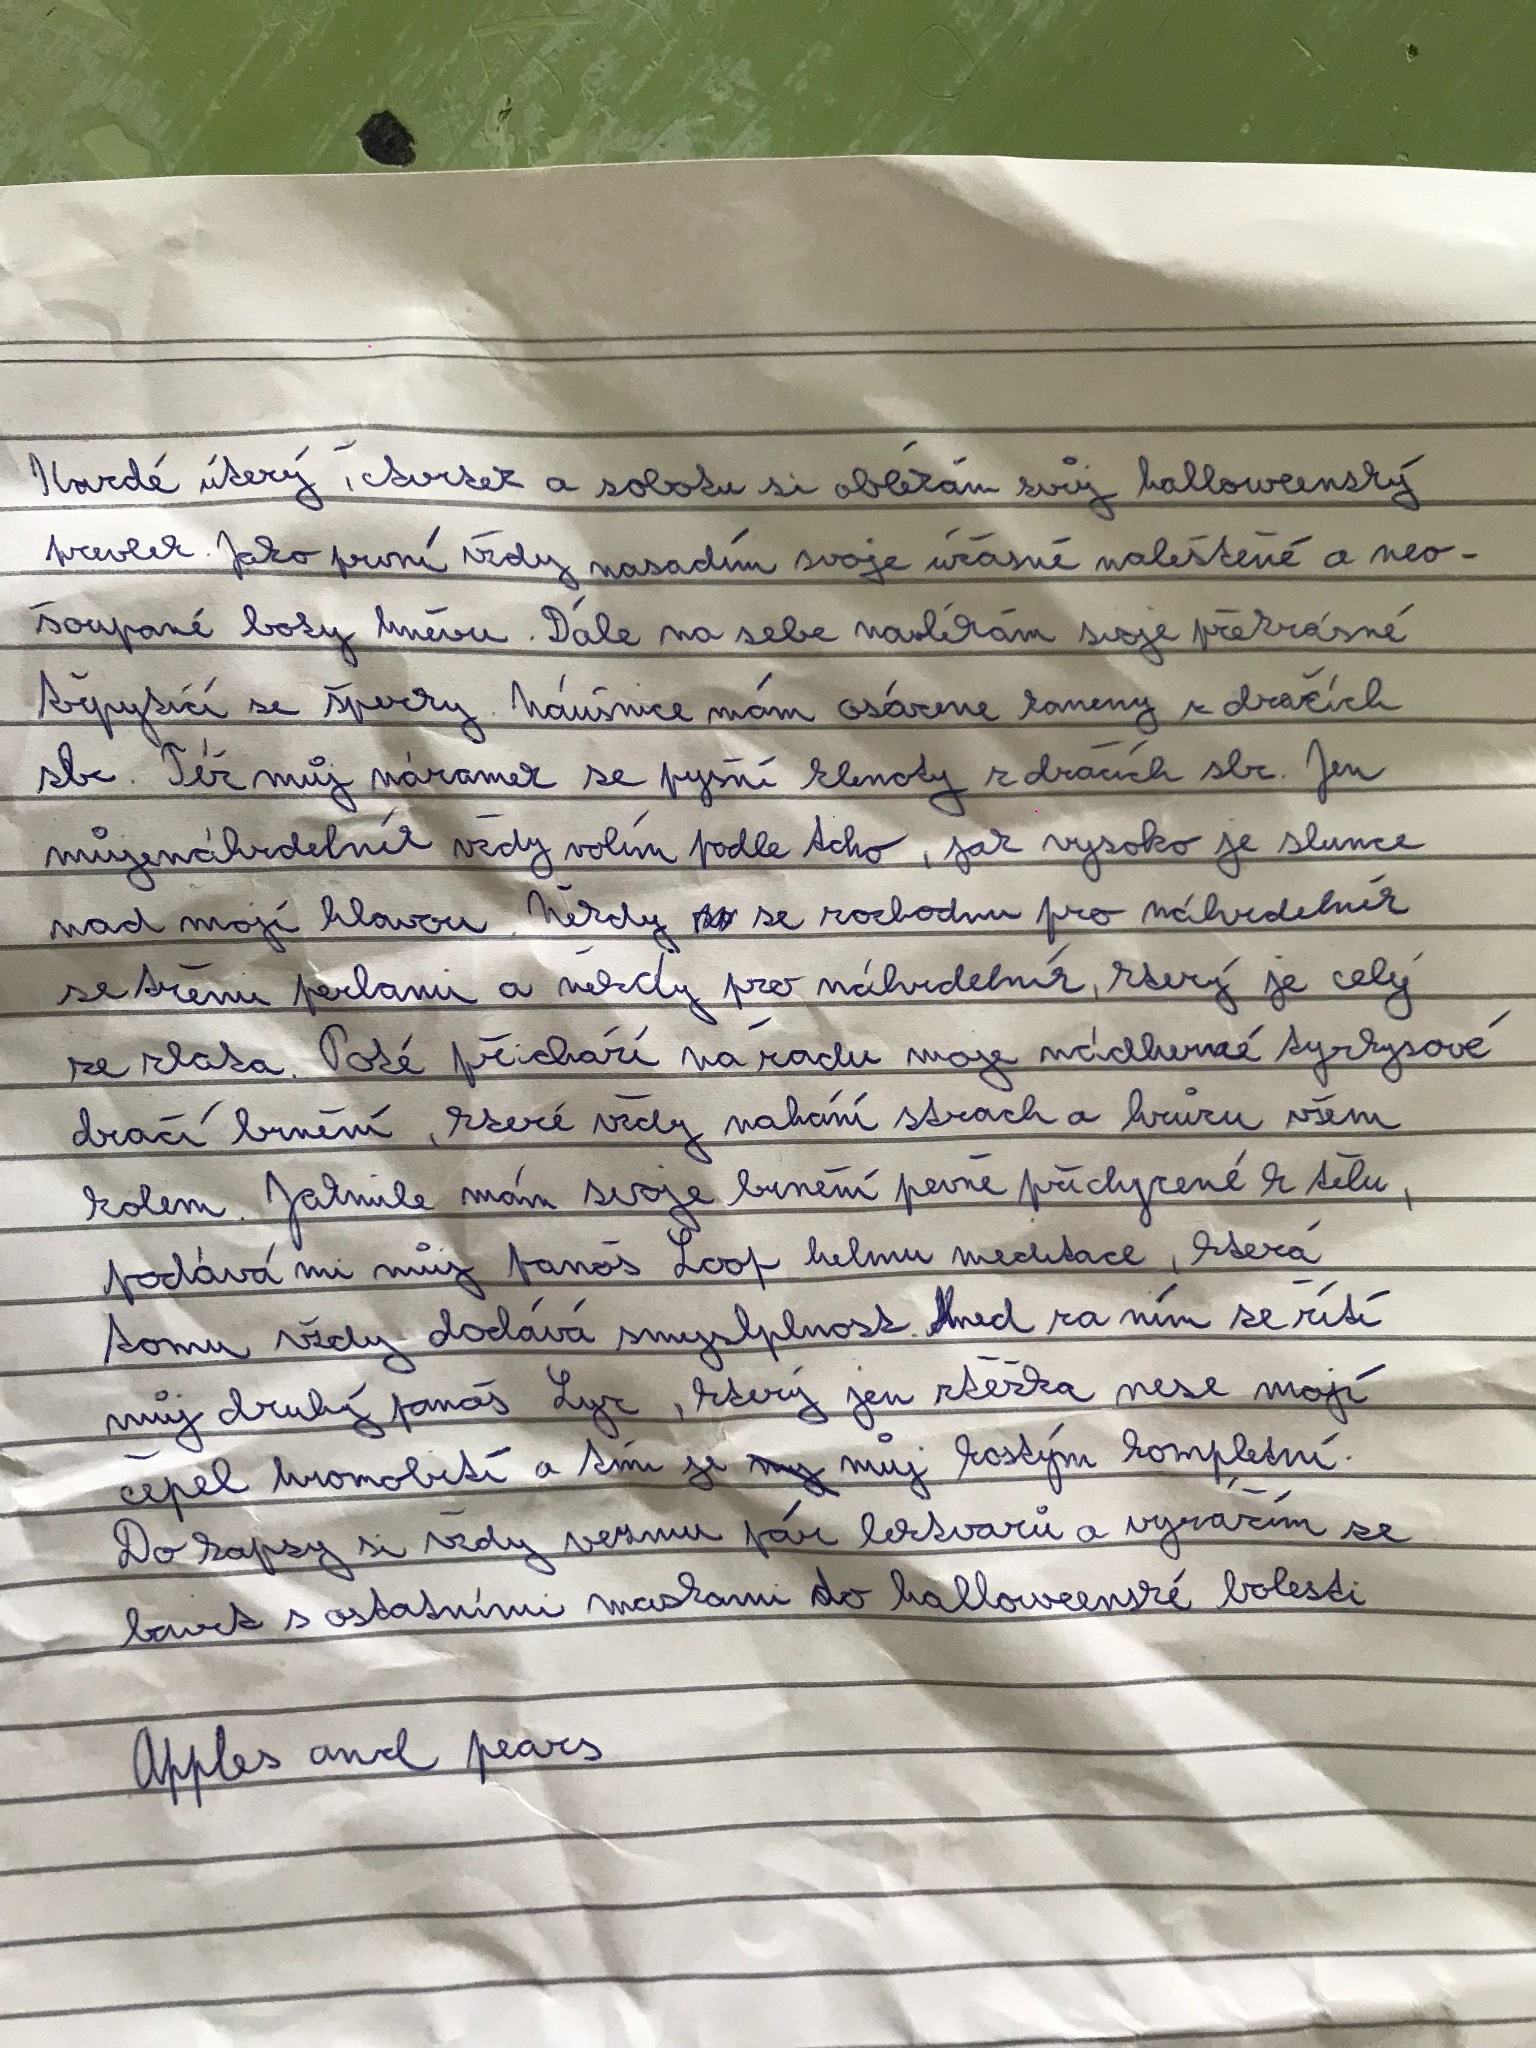 Každé úterý, čtvrtek a sobotu si oblékám svůj halloweenský
převlek. Jako první vždy nasadím svoje úžasné naleštěné a neo-
šoupané boty hněvu. Dále na sebe navlékám svoje překrásné
třpytící se šperky. Náušnice mám osázene kameny z dračích
slz. Též můj náramek se pyšní klenoty z dračích slz. Jen
můj náhrdelník vždy volím podle toho, jak vysoko je slunce
nad mojí hlavou. Někdy se rozhodnu pro náhrdelník
se třemi perlami a někdy pro náhrdelník, který je celý
ze zlata. Poté přichází na řadu moje nádherné tyrkysové
dračí brnění, které vždy nahání strach a hrůzu všem
kolem. Jakmile mám svoje brnění pevně přichycené k tělu,
podává mi můj panoš Loop helmu meditace, která
tomu vždy dodává smyslplnost. Hned za ním se řítí
můj druhý panoš Lyr, který jen ztěžka nese mojí
čepel hromobití a tím je můj kostým kompletní.
Do kapsy si vždy vezmu pár lektvarů a vyrážím se
bavit s ostatními maskami do halloweenské bolesti
Apples and pears